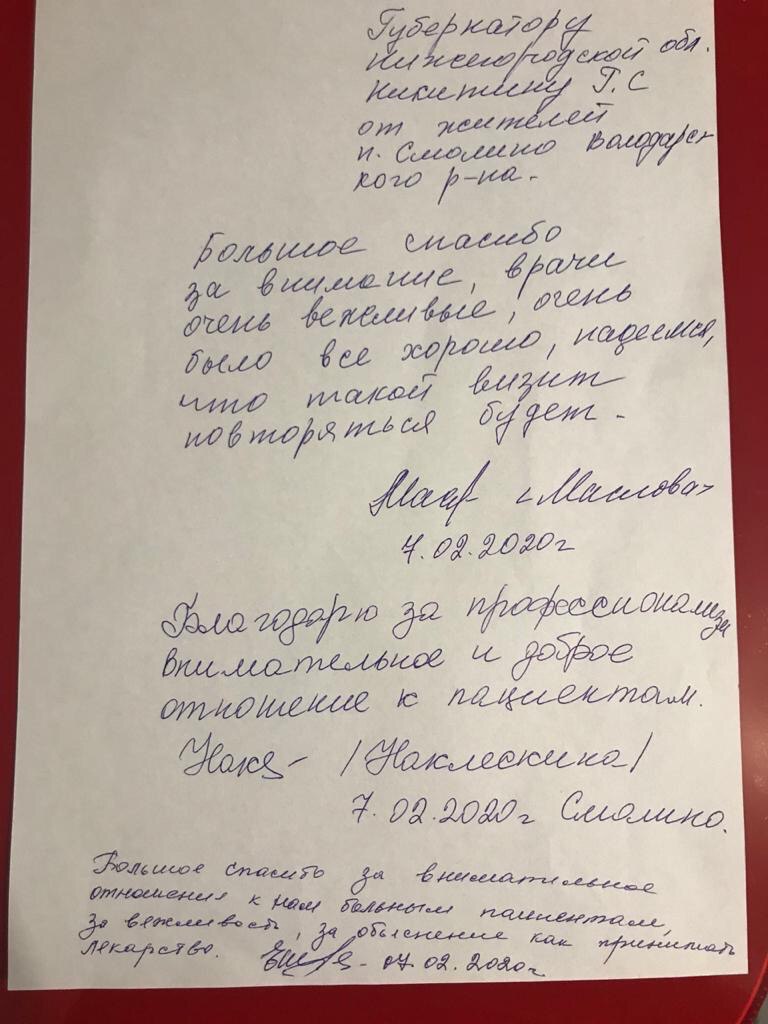 Губернатору
Нижегородской обл.
Никитину Г.С
от жителей
п. Смолино Володарс-
кого р-на.
Большое спасибо
за внимание, врачи
очень вежливые, очень
было все хорошо, надеемся,
что такой визит
повторяться будет.
<Маслова>
7.02.2020г
Благодарю за профессионализм
внимательное и доброе
отношение к пациентам.
/Наклескина/
7.02.2020г Смолино.
Большое спасибо за внимательное
отношения к нам больным пациентам,
за вежливость, за объяснение как принимать
лекарство. 07.02.2020г